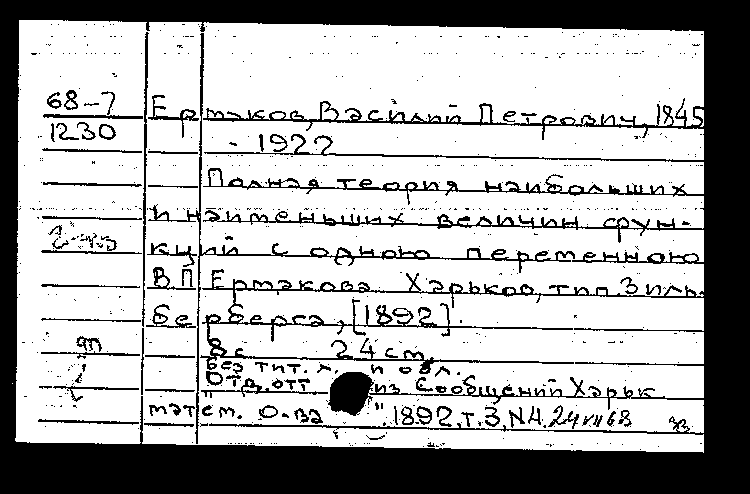 68-7 Ермаков, Василий Петрович, 1845
1230 - 1922
Полная теория наибольших
и наименьших величин фун-
кций с одною переменною
В.П Ермакова Харьков, тип Зиль-
берберга, [1892].
8 с 24 см.
Без тит. л. и обл.
Отд. отт из "Сообщений Харьк
матем. О-ва". 1892, т. 3, N4. 24 VII 68